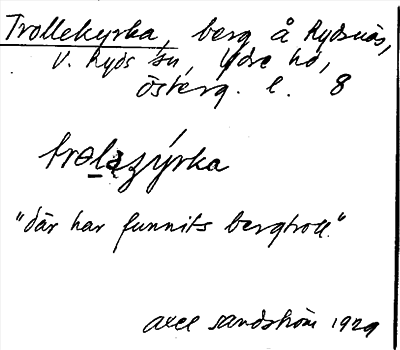 Trollekyrka, berg å Rydsnäs,
V. Ryds sn, Ydre hd,
österg. l. 8
trolazýrka
"där har funnits bergtroll."
Axel Sandström 1929